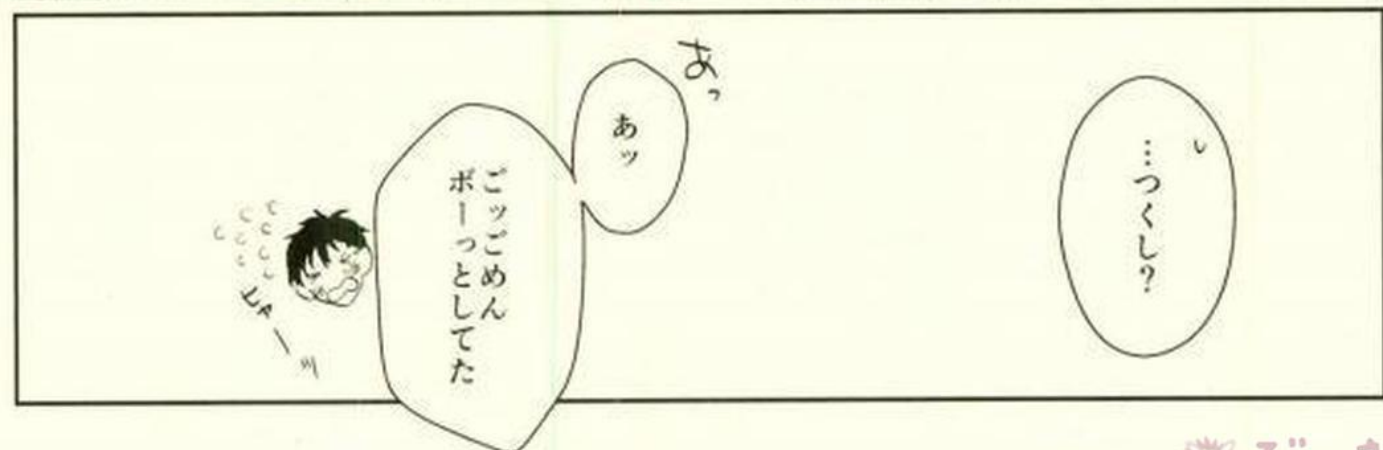 …つくし?
あっ
あッ
ごッごめん
ボーっとしてた
ヒャーッ